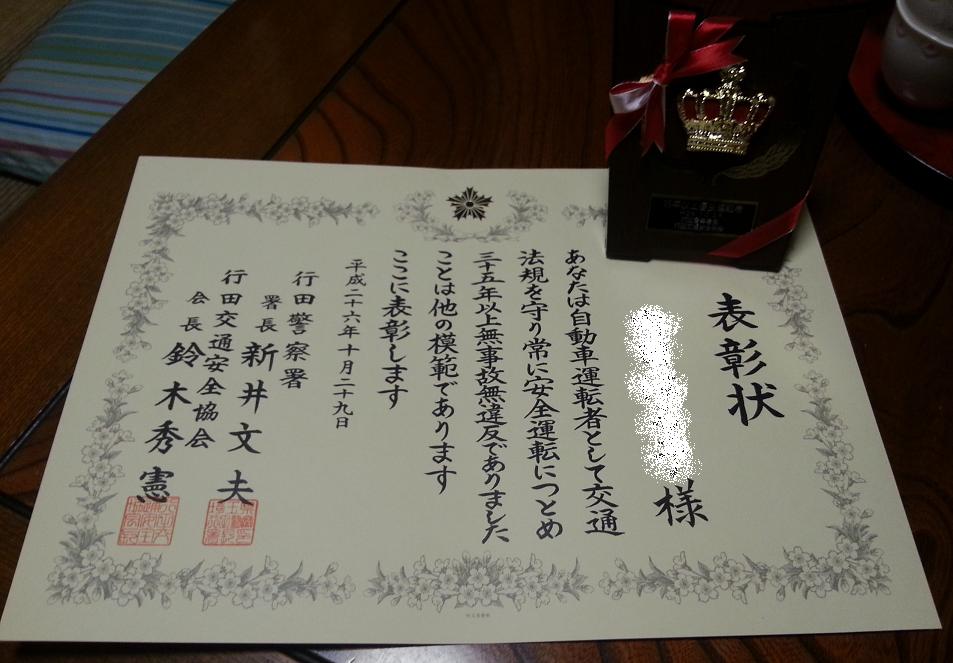 表彰状
様
あなたは自動車運転者として交通
法規を守り常に安全運転につとめ
三十五年以上無事故無違反でありました
ことは他の模範であります
ここに表彰します
平成二十六年十月二十九日
行田警察署
署長 新井文夫
行田交通安全協会
会長 鈴木秀憲